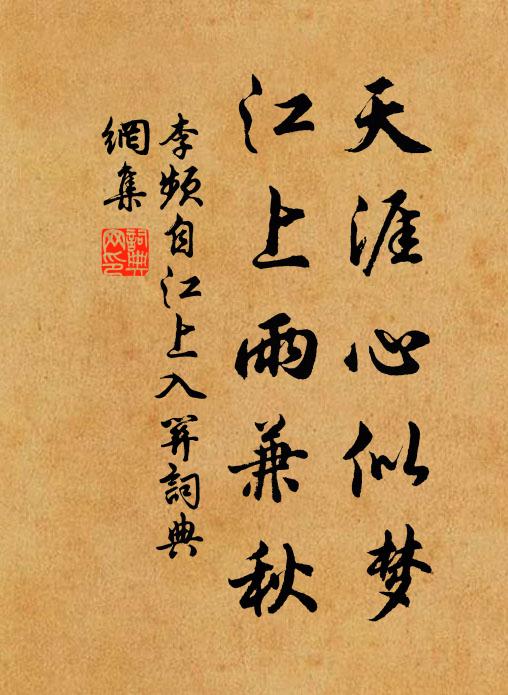 天涯心似梦
江上雨兼秋
李频自江上入关詞典
網集
詞典
网印